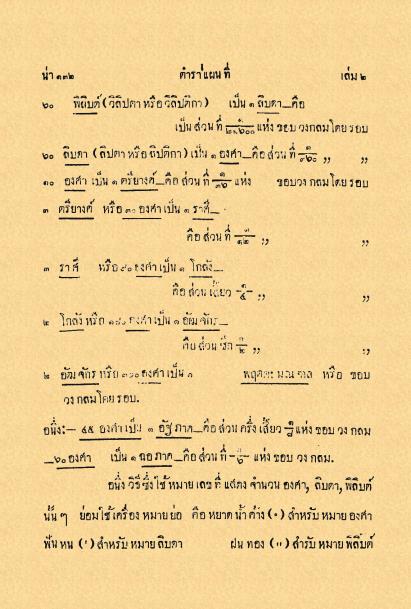 น่า ๑๓๒ ตำราแผนที่ เล่ม ๒
๖๐ พิลิบด์ (วิลิปดา หรือ วิลิปติกา) เป็น ๑ ลิบดา คือ
เป็น ส่วน ที่ ๑/๒๑,๖๐๐ แห่ง ขอบ วง กลม โดย รอบ
๖๐ ลิบดา (ลิปดา หรือ ลิปติกา) เป็น ๑ องศา คือ ส่วน ที่ ๑/๓๖๐ ,, ,,
๑๐ องศา เป็น ๑ ตรียางค์ คือ ส่วน ที่ ๑/๓๖ แห่ง ขอบ วง กลม โดย รอบ
๓ ตรียางค์ หรือ ๓๐ องศา เป็น ๑ ราศี
คือ ส่วน ที่ ๑/๑๒ ,, ,,
๓ ราศี หรือ ๙๐ องศา เป็น ๑ โกลัง
คือ ส่วน เสี้ยว ๑/๔ ,, ,,
๒ โกลัง หรือ ๑๘๐ องศา เป็น ๑ อัฒ จักร
คือ ส่วน ซีก ๑/๒ ,, ,,
๒ อัฒ จักร หรือ ๓๖๐ องศา เป็น ๑ พฤตตะ มณ ฑล หรือ ขอบ
วง กลม โดย รอบ.
อนึ่ง:— ๔๕ องศา เป็น ๑ อัฐ ภาค คือ ส่วน ครึ่ง เสี้ยว ๑/๘ แห่ง ขอบ วง กลม
๖๐ องศา เป็น ๑ ฉอ ภาค คือ ส่วน ที่ ๑/๖ แห่ง ขอบ วง กลม.
อนึ่ง วิธี ซึ่ง ใช้ หมาย เลข ที่ แสดง จำนวน องศา, ลิบดา, พิลิบด์
นั้น ๆ ย่อม ใช้ เครื่อง หมาย ย่อ คือ หยาด น้ำ ค้าง (°) สำหรับ หมาย องศา
ฟัน หนู (') สำหรับ หมาย ลิบดา ฝน ทอง (") สำรับ หมาย พิลิบด์